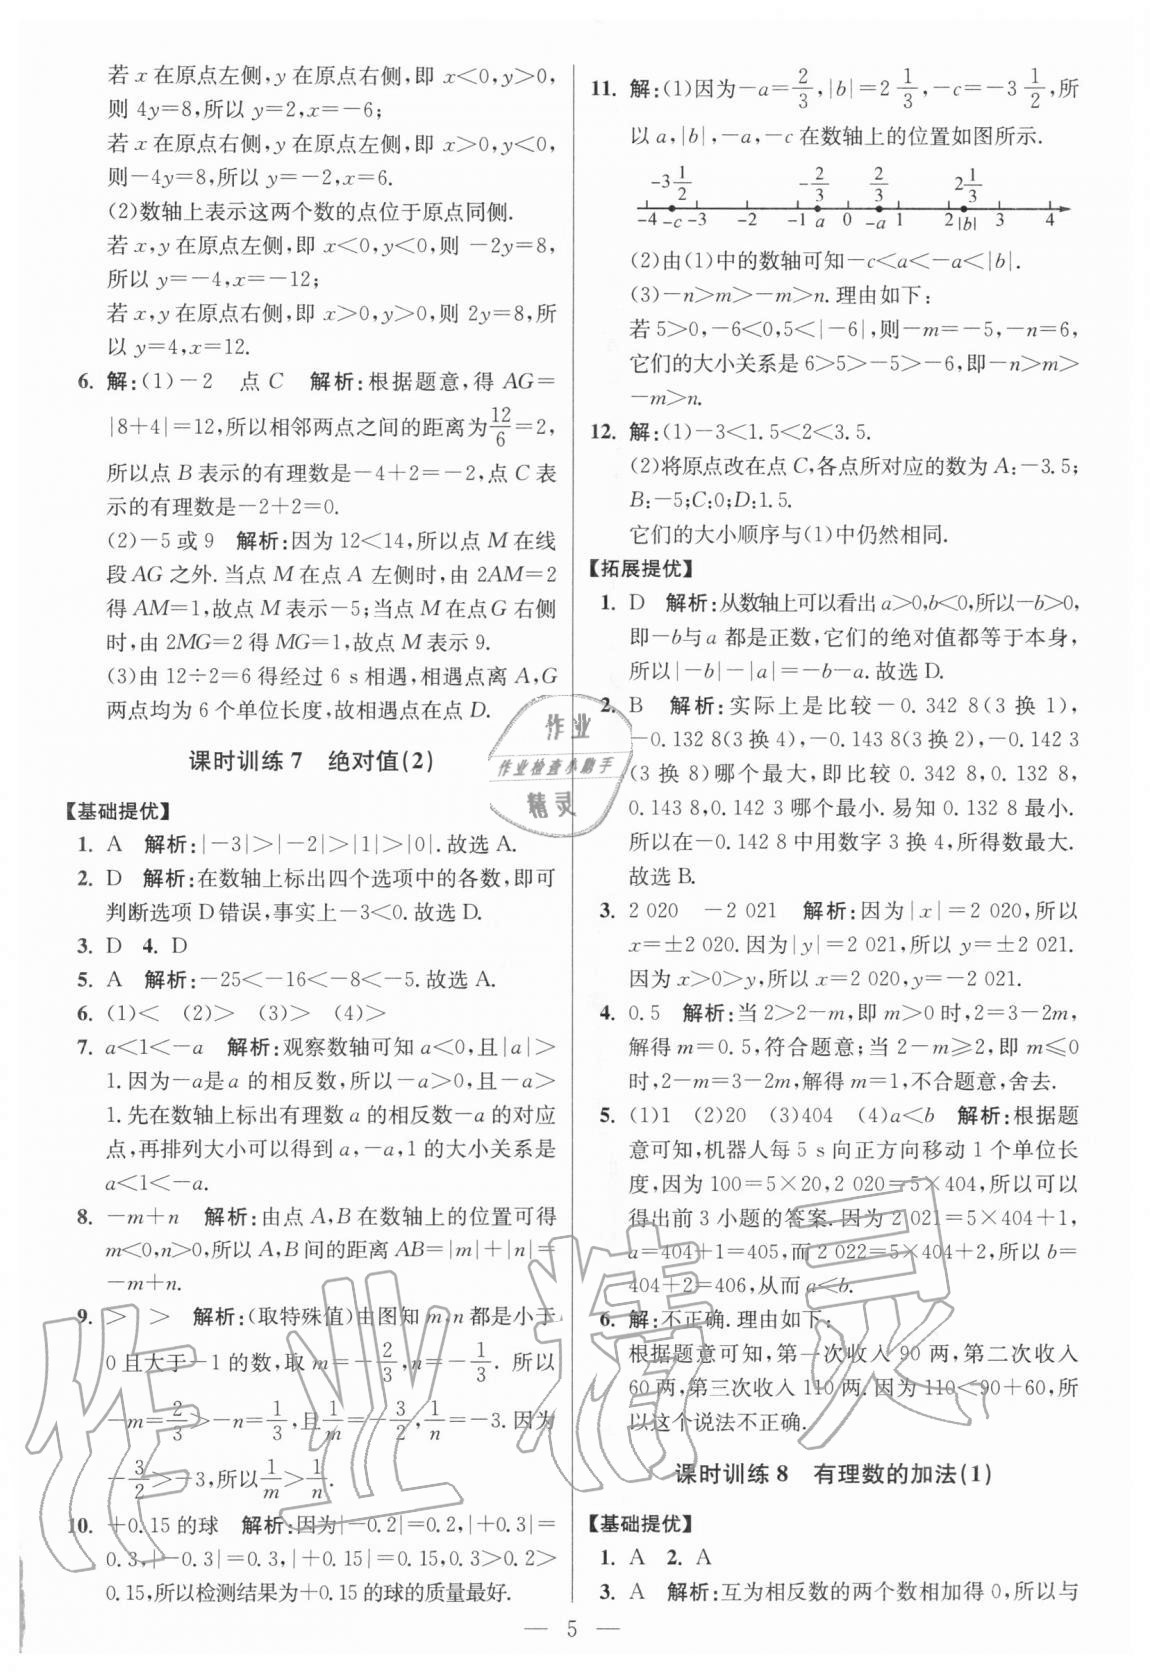 若 x 在原点左侧,y 在原点右侧,即 x<0,y>0,
则 4y=8,所以 y=2,x=-6;
若 x 在原点右侧,y 在原点左侧,即 x>0,y<0,
则-4y=8,所以 y=-2,x=6.
(2)数轴上表示这两个数的点位于原点同侧.
若 x,y 在原点左侧,即 x<0,y<0,则 -2y=8,
所以 y=-4,x=-12;
若 x,y 在原点右侧,即 x>0,y>0,则 2y=8,所
以 y=4,x=12.
6. 解:(1)-2 点 C 解析:根据题意,得 AG=
|8+4|=12,所以相邻两点之间的距离为12/6=2,
所以点 B 表示的有理数是-4+2=-2,点 C 表
示的有理数是-2+2=0.
(2)-5 或 9 解析:因为 12<14,所以点 M 在线
段 AG 之外. 当点 M 在点 A 左侧时,由 2AM=2
得 AM=1,故点 M 表示-5;当点 M 在点 G 右侧
时,由 2MG=2 得 MG=1,故点 M 表示 9.
(3)由 12÷2=6 得经过 6 s 相遇,相遇点离 A,G
两点均为 6 个单位长度,故相遇点在点 D.
课时训练 7 绝对值(2)
【基础提优】
1. A 解析:|-3|>|-2|>|1|>|0|. 故选 A.
2. D 解析:在数轴上标出四个选项中的各数,即可
判断选项 D 错误,事实上-3<0. 故选 D.
3. D 4. D
5. A 解析:-25<-16<-8<-5. 故选 A.
6. (1)< (2)> (3)> (4)>
7. a<1<-a 解析:观察数轴可知 a<0,且|a|>
1. 因为-a是 a 的相反数,所以-a>0,且-a>
1. 先在数轴上标出有理数 a 的相反数-a 的对应
点,再排列大小可以得到 a,-a,1 的大小关系是
a<1<-a.
8. -m+n 解析:由点 A,B 在数轴上的位置可得
m<0,n>0,所以 A,B 间的距离 AB=|m|+|n|=
-m+n.
9. > > 解析:(取特殊值)由图知 m,n 都是小于
0 且大于-1 的数,取 m=-2/3,n=-1/3. 所以
-m=2/3>-n=1/3,且1/m=-3/2,1/n=-3. 因为
-3/2>-3,所以1/m>1/n.
10. +0.15 的球 解析:因为|-0.2|=0.2,|+0.3|=
0.3,|-0.3|=0.3,|+0.15|=0.15,0.3>0.2>
0.15,所以检测结果为+0.15 的球的质量最好.
11. 解:(1)因为-a=2/3,|b|=2 1/3,-c=-3 1/2,所
以 a,|b|,-a,-c 在数轴上的位置如图所示.
-3 1/2 -2/3 2/3 2 1/3
-4 -c -3 -2 -1 a 0 -a 1 2 |b| 3 4
(2)由(1)中的数轴可知-c<a<-a<|b|.
(3)-n>m>-m>n. 理由如下:
若 5>0,-6<0,5<|-6|,则-m=-5,-n=6,
它们的大小关系是 6>5>-5>-6,即-n>m>
-m>n.
12. 解:(1)-3<1.5<2<3.5.
(2)将原点改在点 C,各点所对应的数为 A:-3.5;
B:-5;C:0;D:1.5.
它们的大小顺序与(1)中仍然相同.
【拓展提优】
1. D 解析:从数轴上可以看出 a>0,b<0,所以-b>0,
即-b与 a 都是正数,它们的绝对值都等于本身,
所以|-b|-|a|=-b-a. 故选 D.
2. B 解析:实际上是比较-0.342 8(3 换 1),
-0.132 8(3 换 4),-0.143 8(3 换 2),-0.142 3
(3 换 8)哪个最大,即比较 0.342 8,0.132 8,
0.143 8,0.142 3 哪个最小. 易知 0.132 8 最小.
所以在-0.142 8 中用数字 3 换 4,所得数最大.
故选 B.
3. 2 020 -2 021 解析:因为|x|=2 020,所以
x=±2 020. 因为|y|=2 021,所以 y=±2 021.
因为 x>0>y,所以 x=2 020,y=-2 021.
4. 0.5 解析:当 2>2-m,即 m>0 时,2=3-2m,
解得 m=0.5,符合题意;当 2-m≥2,即 m≤0
时,2-m=3-2m,解得 m=1,不合题意,舍去.
5. (1)1 (2)20 (3)404 (4)a<b 解析:根据题
意可知,机器人每 5 s 向正方向移动 1 个单位长
度,因为 100=5×20,2 020=5×404,所以可以
得出前 3 小题的答案. 因为 2 021=5×404+1,
a=404+1=405,而 2 022=5×404+2,所以 b=
404+2=406,从而 a<b.
6. 解:不正确. 理由如下:
根据题意可知,第一次收入 90 两,第二次收入
60 两,第三次收入 110 两. 因为 110<90+60,所
以这个说法不正确.
课时训练 8 有理数的加法(1)
【基础提优】
1. A 2. A
3. A 解析:互为相反数的两个数相加得 0,所以与
— 5 —
作业
作业检查小助手
精灵
作业精灵